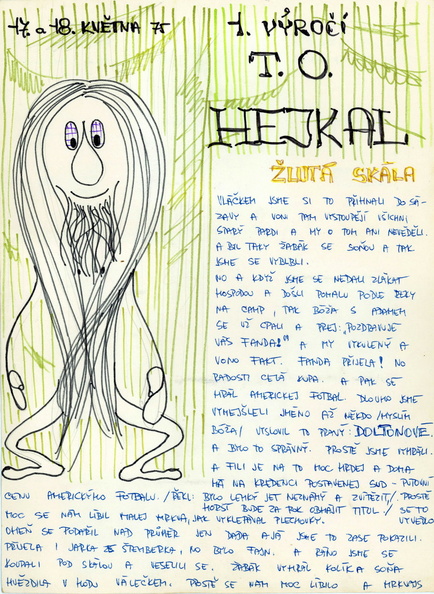 17. a 18. KVĚTNA 75
1. VÝROČÍ
T. O.
HEJKAL
ŽLUTÁ SKÁLA
VLÁČKEM JSME SI TO PŘIHNALI DO SÁ-
ZAVY A VONI TAM VYSTOUPĚJÍ VŠICHNI
STARÝ BARDI A MY O TOM ANI NEVĚDĚLI.
A BIL TAKY ŽABÁK SE SOŇOU A TAK
JSME SE VYBLBLI.
NO A KDYŽ JSME SE NEDALI ZLÁKAT
HOSPODOU A DOŠLI POMALU PODLE ŘEKY
NA CAMP, TAK BÓŽA S ADAMEM
SE UŽ CPALI A PREJ: „POZDRAVUJE
VÁS FANDA!" A MY VYKULENÝ A
VONO FAKT. FANDA PŘIJELA! NO
RADOSTI CELÁ KUPA. A PAK SE
HRÁL AMERICKEJ FOTBAL. DLOUHO JSME
VYMEJŠLELI JMÉNO AŽ NĚKDO /MYSLÍM
BÓŽA/ VYSLOVIL TO PRAVÝ: DOLTONOVÉ.
A BYLO TO SPRÁVNÝ. PROSTĚ JSME VYHRÁLI.
A FILI JE NA TO MOC HRDEJ A DOMA
MÁ NA KREDENCI POSTAVENEJ SUD - PUTOVNÍ
CENU AMERICKÝHO FOTBALU. /ŘEKL: BYLO LEHKÝ JET NEZNÁMÝ A ZVÍTĚZIT,/ PROSTĚ
HORŠÍ BUDE ZA ROK OBHÁJIT TITUL./ SE TO
MOC SE NÁM LÍBIL MALEJ MRKVA, JAK VYKLEPÁVAL PLECHOVKY. UTVEŘLO
OHEŇ SE PODAŘIL NAD PRŮMĚR JEN DÁĎA A JÁ JSME TO ZASE POKAZILI.
PŘIJELA I JARKA ZE ŠTEMBERKA, NO BYLO FAJN. A RÁNO JSME SE
KOUPALI POD SKÁLOU A VESELILI SE. ŽABÁK VYHRÁL KOLÍKA SOŇA
HVĚZDILA V HODU VÁLEČKEM. PROSTĚ SE NÁM MOC LÍBILO A